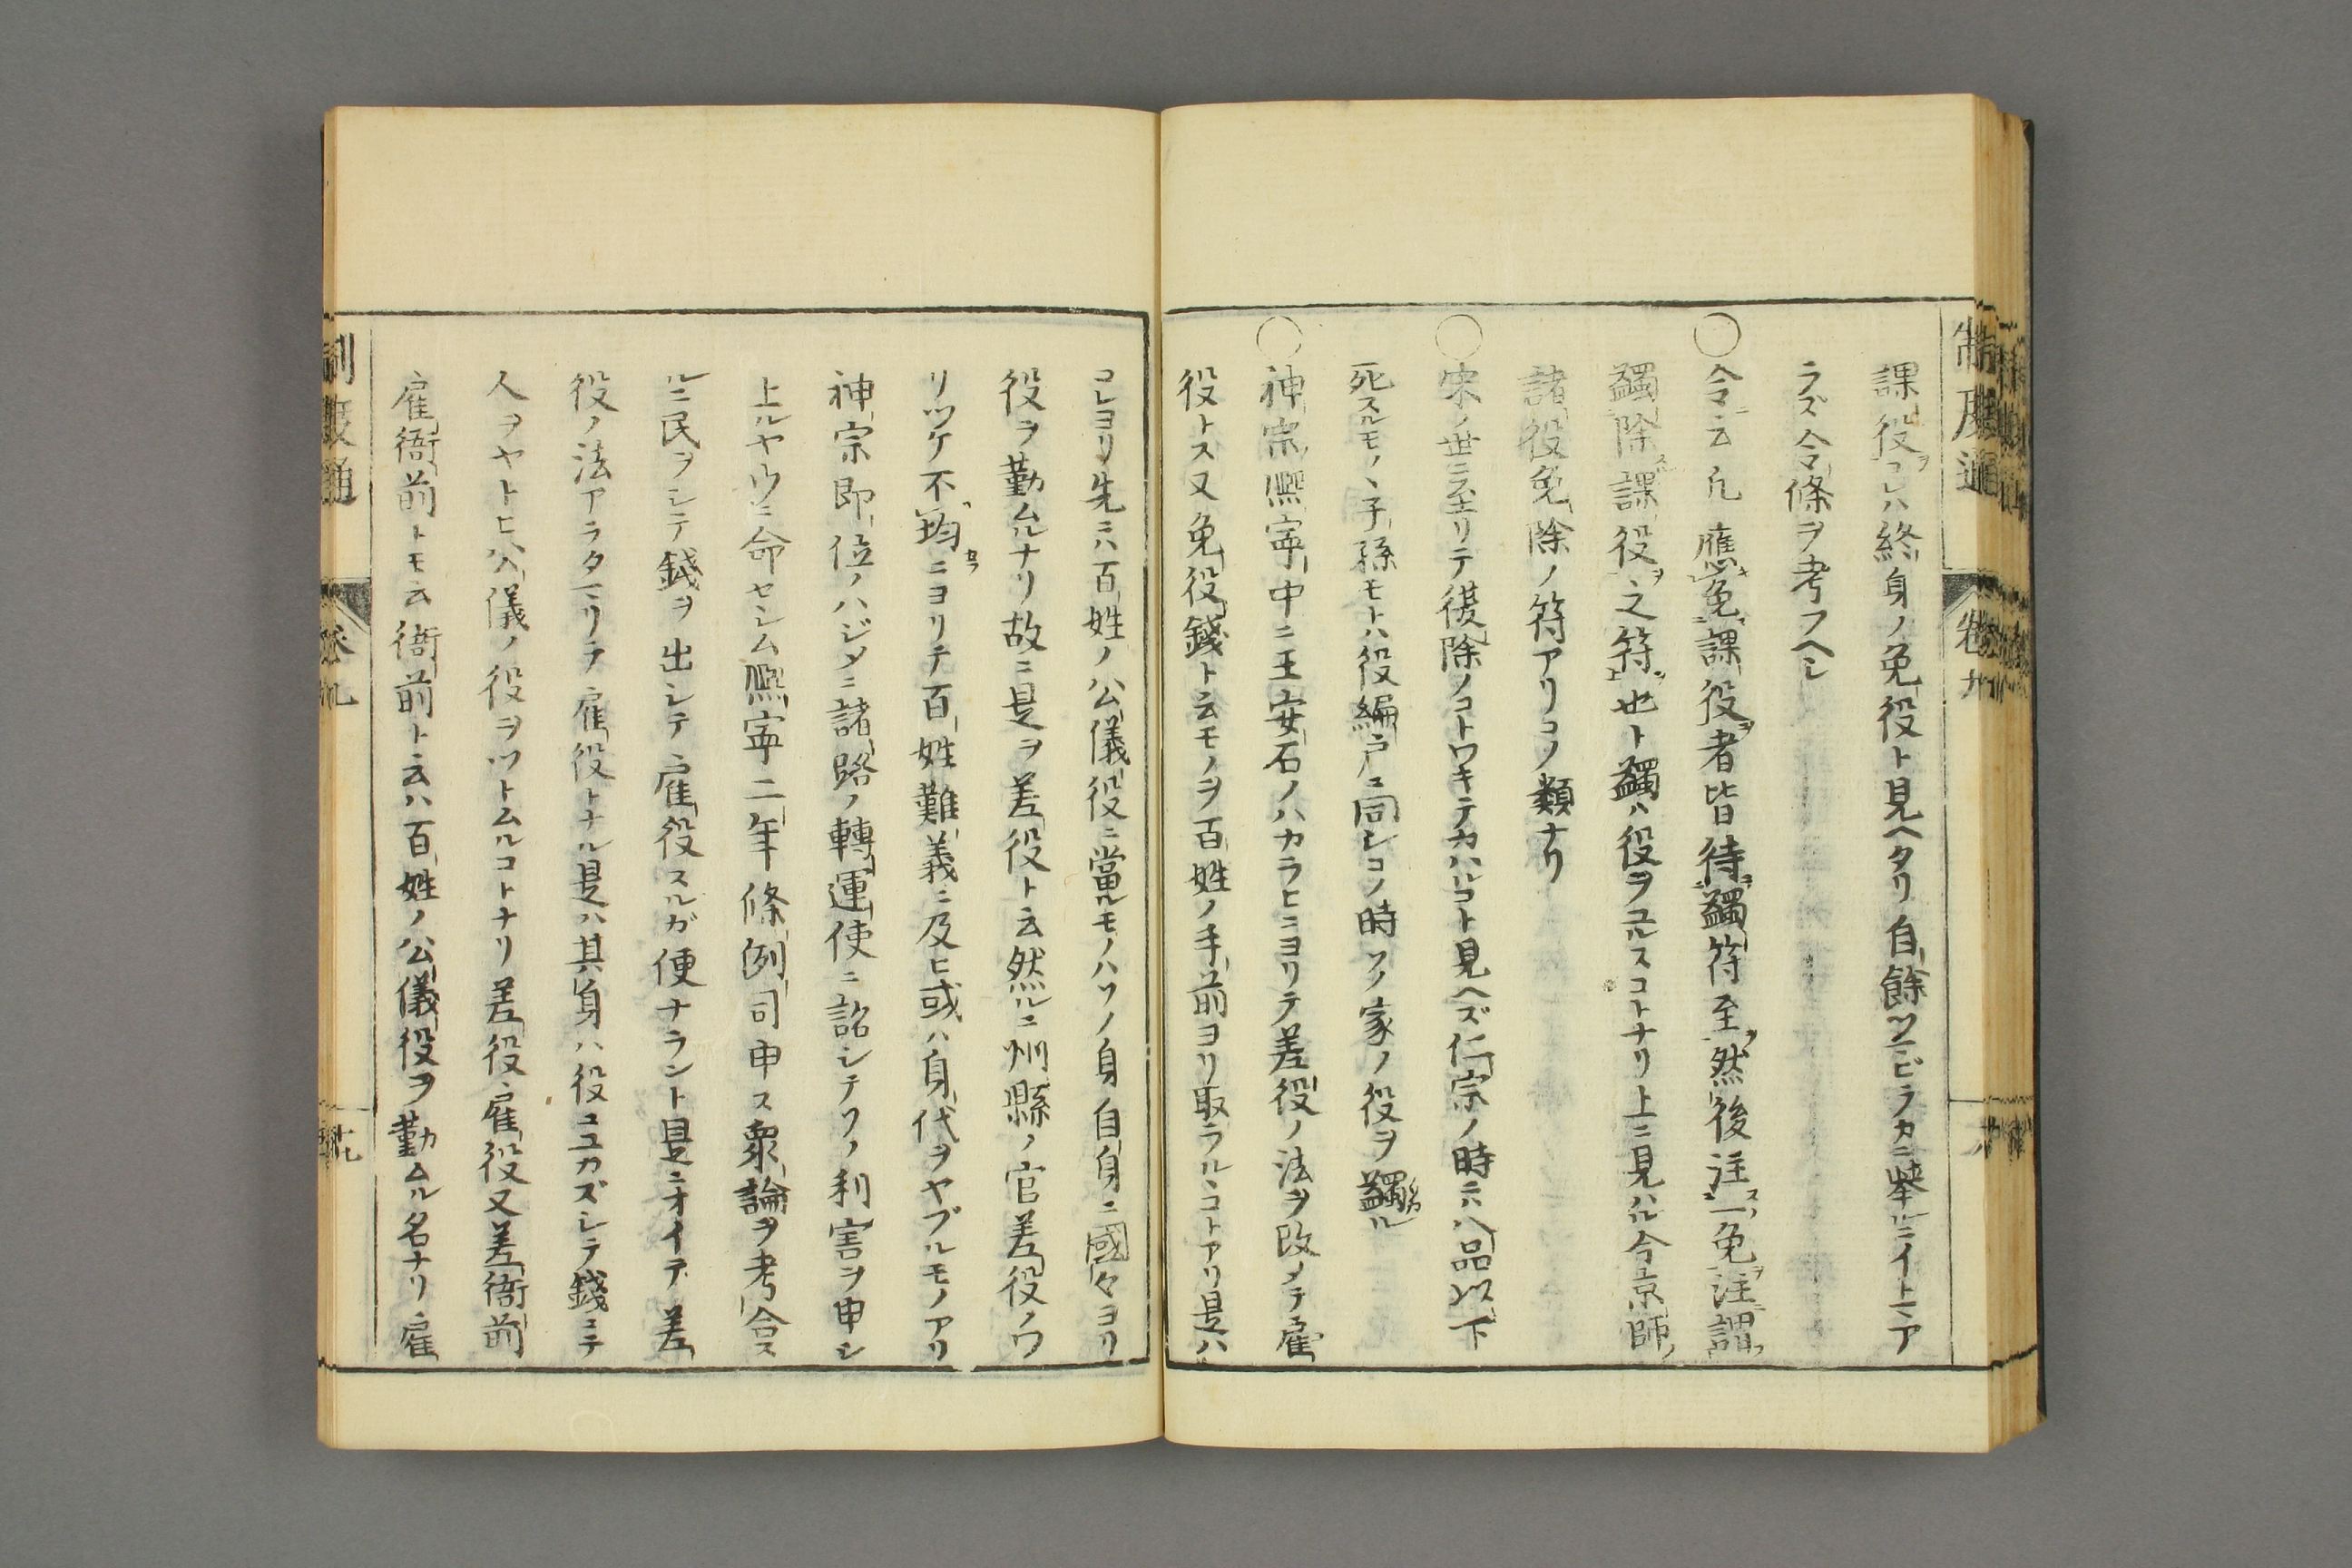 制度通 卷九
課役ヲコレハ終身ノ免役ト見ヘタリ自餘ツマビラカニ擧ルニイトマア
ラズ令條ヲ考フヘシ
○令ニ云凡應免課役者皆待蠲符至然後注免注謂
蠲除課役之符也ト蠲ハ役ヲユルスコトナリ上ニ見ハル今京師ノ
諸役免除ノ符アリコノ類ナリ
○宋ノ世ニ至リテ復除ノコトワキテカハルコト見ヘズ仁宗ノ時ニ八品以下
死スルモノヽ子孫モトハ役編戸ニ同シコノ時ソノ家ノ役ヲ蠲ル
○神宗熈寧中ニ王安石ノハカラヒニヨリテ差役ノ法ヲ改メテ雇
役トス又免役錢ト云モノヲ百姓ノ手前ヨリ取ラルヽコトアリ是ハ
コレヨリ先ニハ百姓ノ公儀役ニ當ルモノハソノ身自身ニ國々ヨリ
役ヲ勤ムルナリ故ニ是ヲ差役ト云然ルニ州縣ノ官差役ノワ
リツケ不均ニヨリテ百姓難義ニ及ヒ或ハ身代ヲヤブルモノアリ
神宗即位ノハジメニ諸路ノ轉運使ニ詔シテソノ利害ヲ申シ
上ルヤウニ命セシム熈寧二年條例司申ス衆論ヲ考合ス
ルニ民ヲシテ錢ヲ出シテ雇役スルガ便ナラント是ニオイテ差
役ノ法アラタマリテ雇役トナル是ハ其身ハ役ニユカズシテ錢ニテ
人ヲヤトヒ公儀ノ役ヲツトムルコトナリ差役雇役又差衙前
雇衙前トモ云衙前ト云ハ百姓ノ公儀役ヲ勤ムル名ナリ雇
制度通 卷九